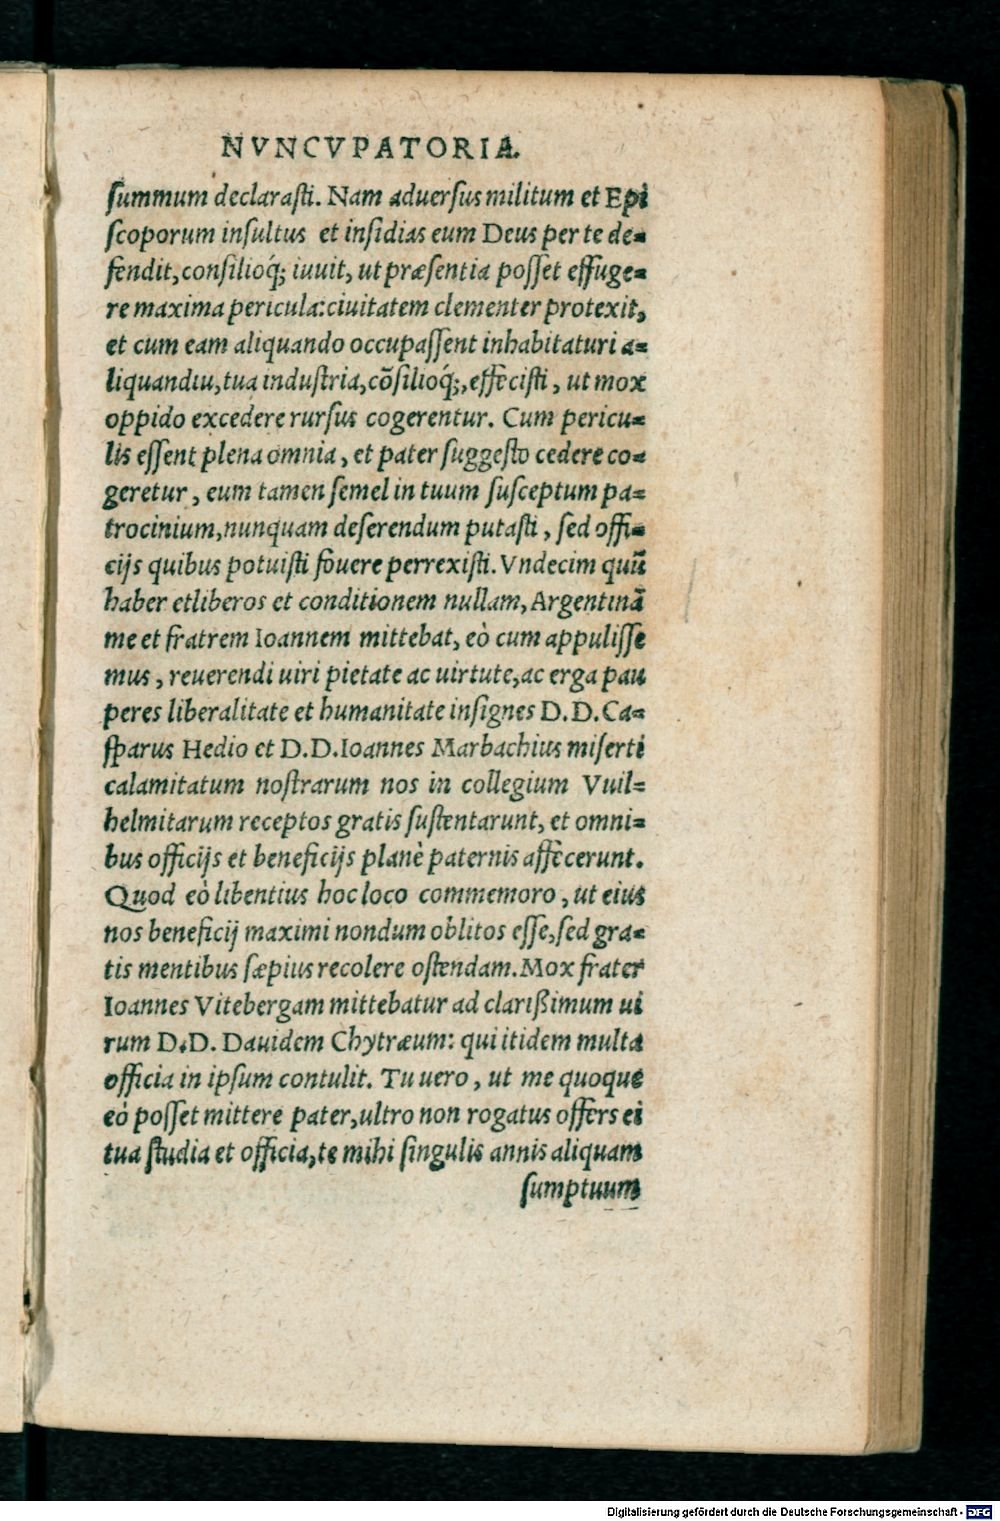 NVNCVPATORIA.
summum declarasti. Nam aduersus militum et Epi
scoporum insultus et insidias eum Deus per te de=
fendit, consilioq́; iuuit, ut præsentia posset effuge=
re maxima pericula: ciuitatem clementer protexit,
et cum eam aliquando occupassent inhabitaturi a=
liquandiu, tua industria, cõsilioq́;, effecisti, ut mox
oppido excedere rursus cogerentur. Cum pericu=
lis essent plena omnia, et pater suggesto cedere co=
geretur, eum tamen semel in tuum susceptum pa=
trocinium, nunquam deserendum putasti, sed offi=
cijs quibus potuisti fouere perrexisti. Vndecim quũ
haber etliberos et conditionem nullam, Argentinã
me et fratrem Ioannem mittebat, eò cum appulisse
mus, reuerendi uiri pietate ac uirtute, ac erga pau
peres liberalitate et humanitate insignes D. D. Ca=
sparus Hedio et D. D. Ioannes Marbachius miserti
calamitatum nostrarum nos in collegium Vuil=
helmitarum receptos gratis sustentarunt, et omni=
bus officijs et beneficijs planè paternis affecerunt.
Quod eò libentius hoc loco commemoro, ut eius
nos beneficij maximi nondum oblitos esse, sed gra=
tis mentibus sæpius recolere ostendam. Mox frater
Ioannes Vitebergam mittebatur ad clarißimum ui
rum D. D. Dauidem Chytræum: qui itidem multa
officia in ipsum contulit. Tu uero, ut me quoque
eò posset mittere pater, ultro non rogatus offers ei
tua studia et officia, te mihi singulis annis aliquam
sumptuum
Digitalisierung gefördert durch die Deutsche Forschungsgemeinschaft - DFG